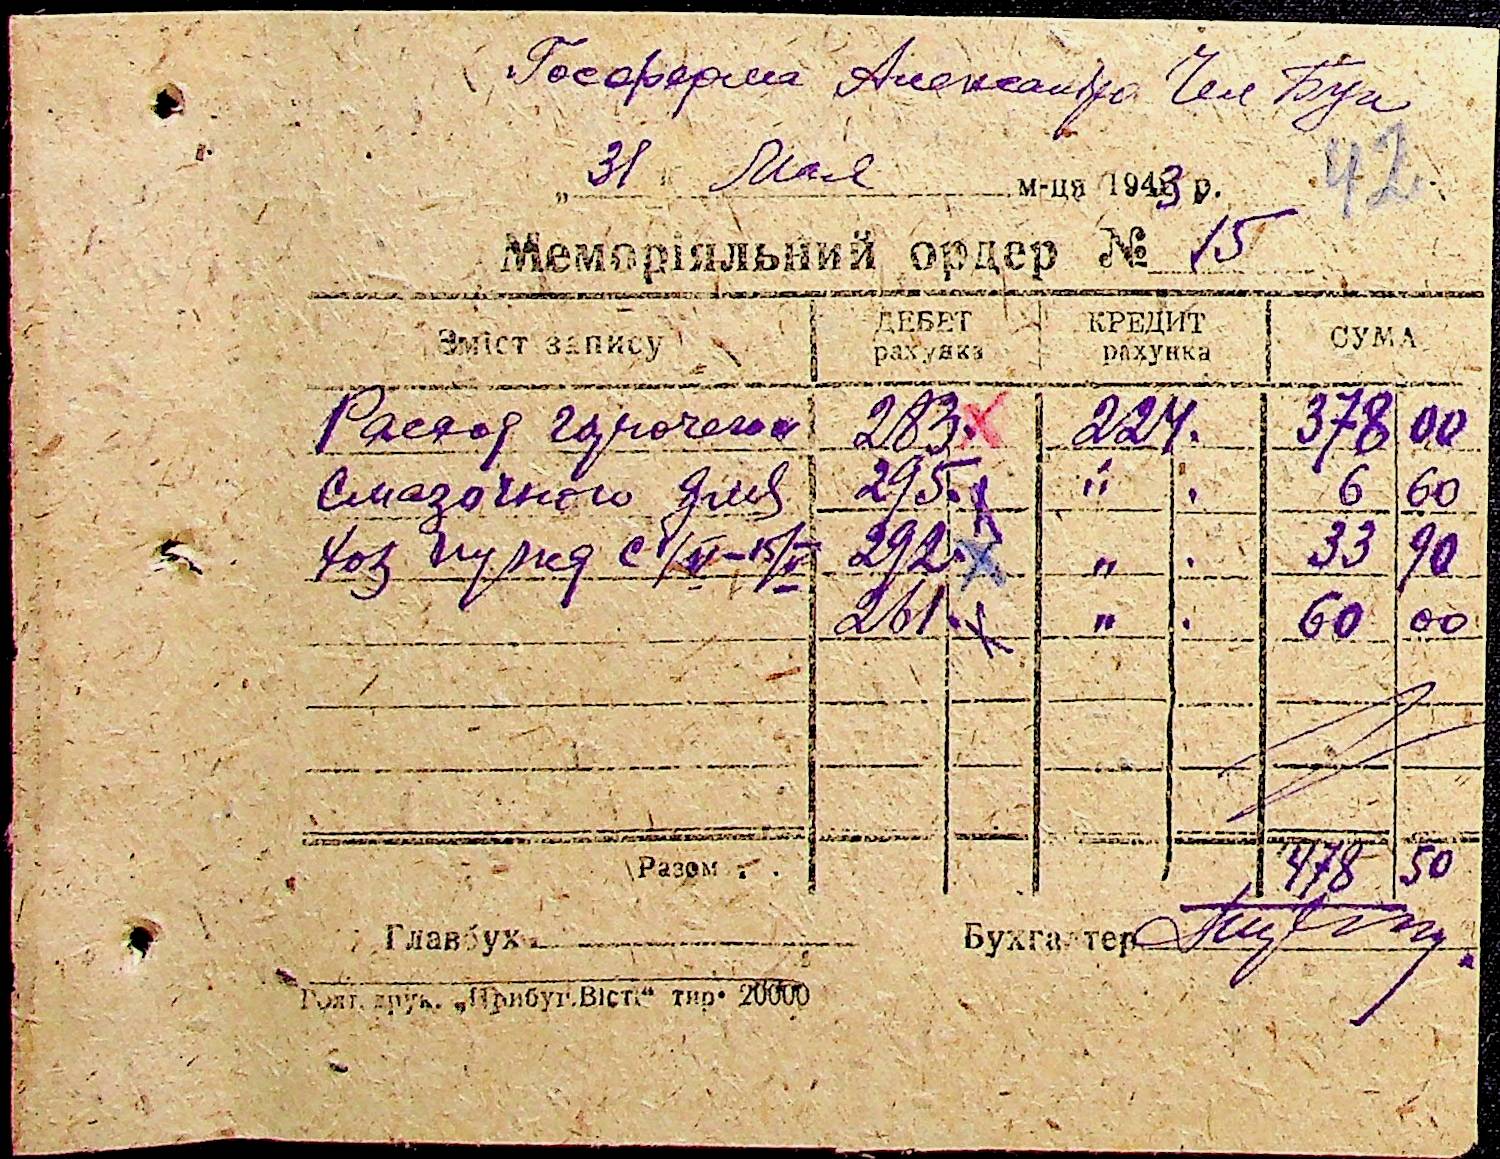 Госферма Александро Чел Бун
42
„ 31 " Мая м-ця 1943 р.
Меморіяльний ордер № 15
Зміст запису ДЕБЕТ рахунка КРЕДИТ рахунка СУМА
Расход горючего и 283. 224. 378 00
смазочного для 295. " . 6 60
хоз нужд с 1/V–15/V 292. " . 33 90
261. " . 60 00
Разом . . 478 50
Главбух Бухгалтер
друк. „Прибуг.Вісті“ тир. 20000